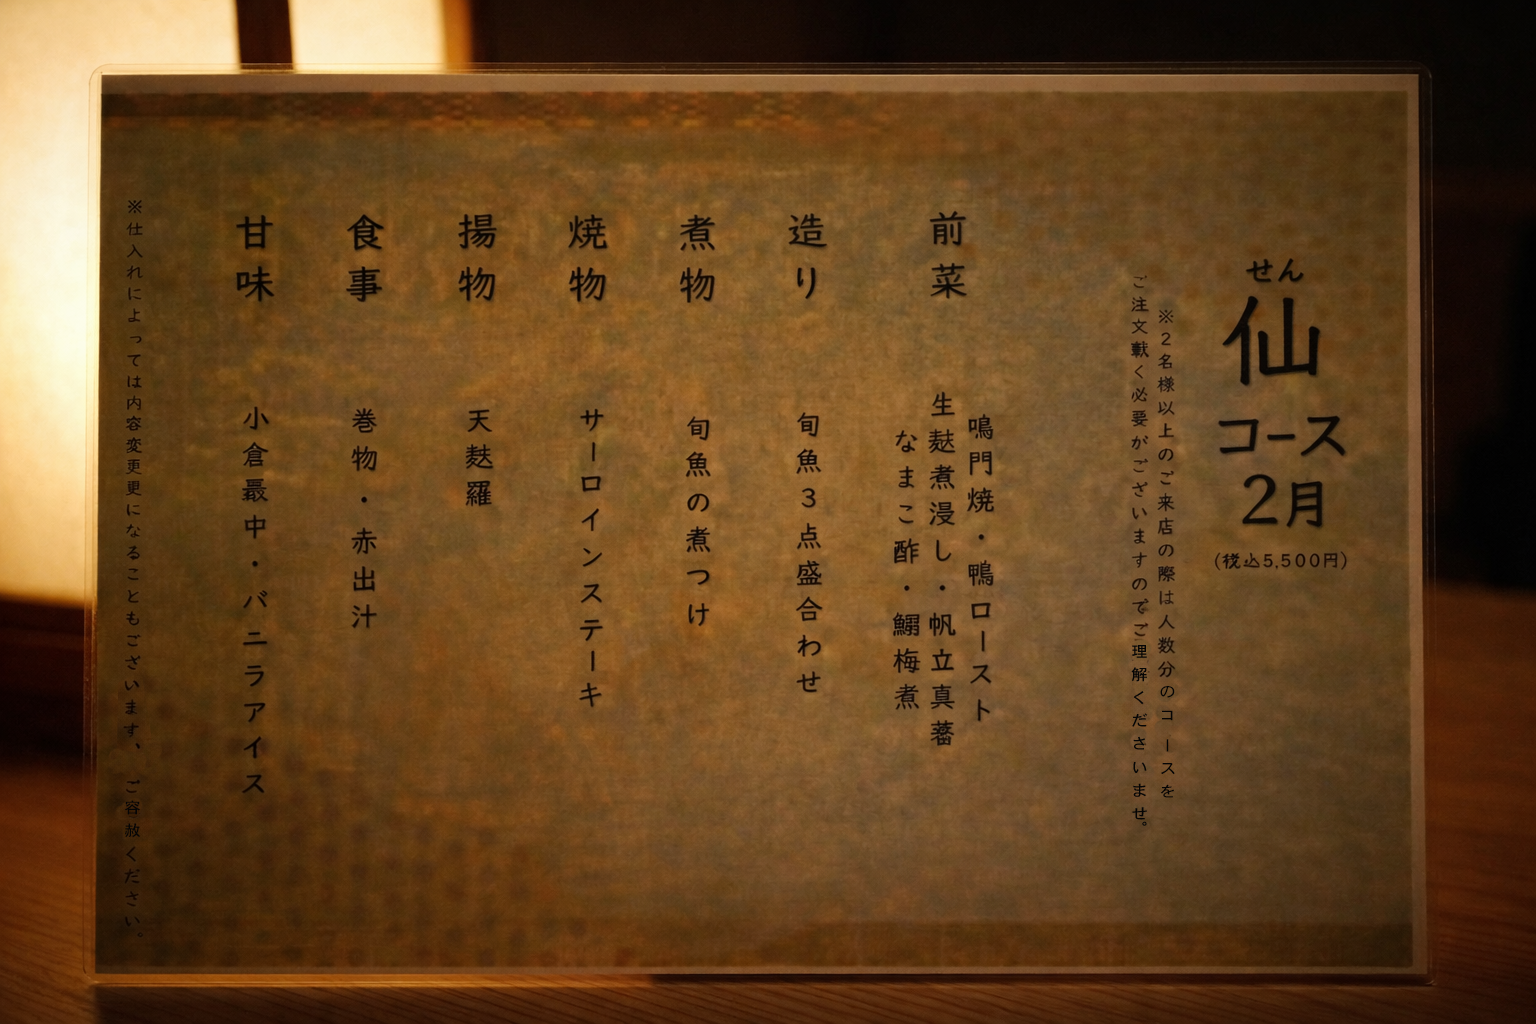 せん
仙
コース
2月
(税込5,500円)
※2名様以上のご来店の際は人数分のコースを
ご注文戴く必要がございますのでご理解くださいませ。
前菜
鳴門焼・鴨ロースト
生麩煮浸し・帆立真薯
なまこ酢・鰯梅煮
造り
旬魚3点盛合わせ
煮物
旬魚の煮つけ
焼物
サーロインステーキ
揚物
天麩羅
食事
巻物・赤出汁
甘味
小倉最中・バニラアイス
※仕入れによっては内容変更更になることもございます、ご容赦ください。